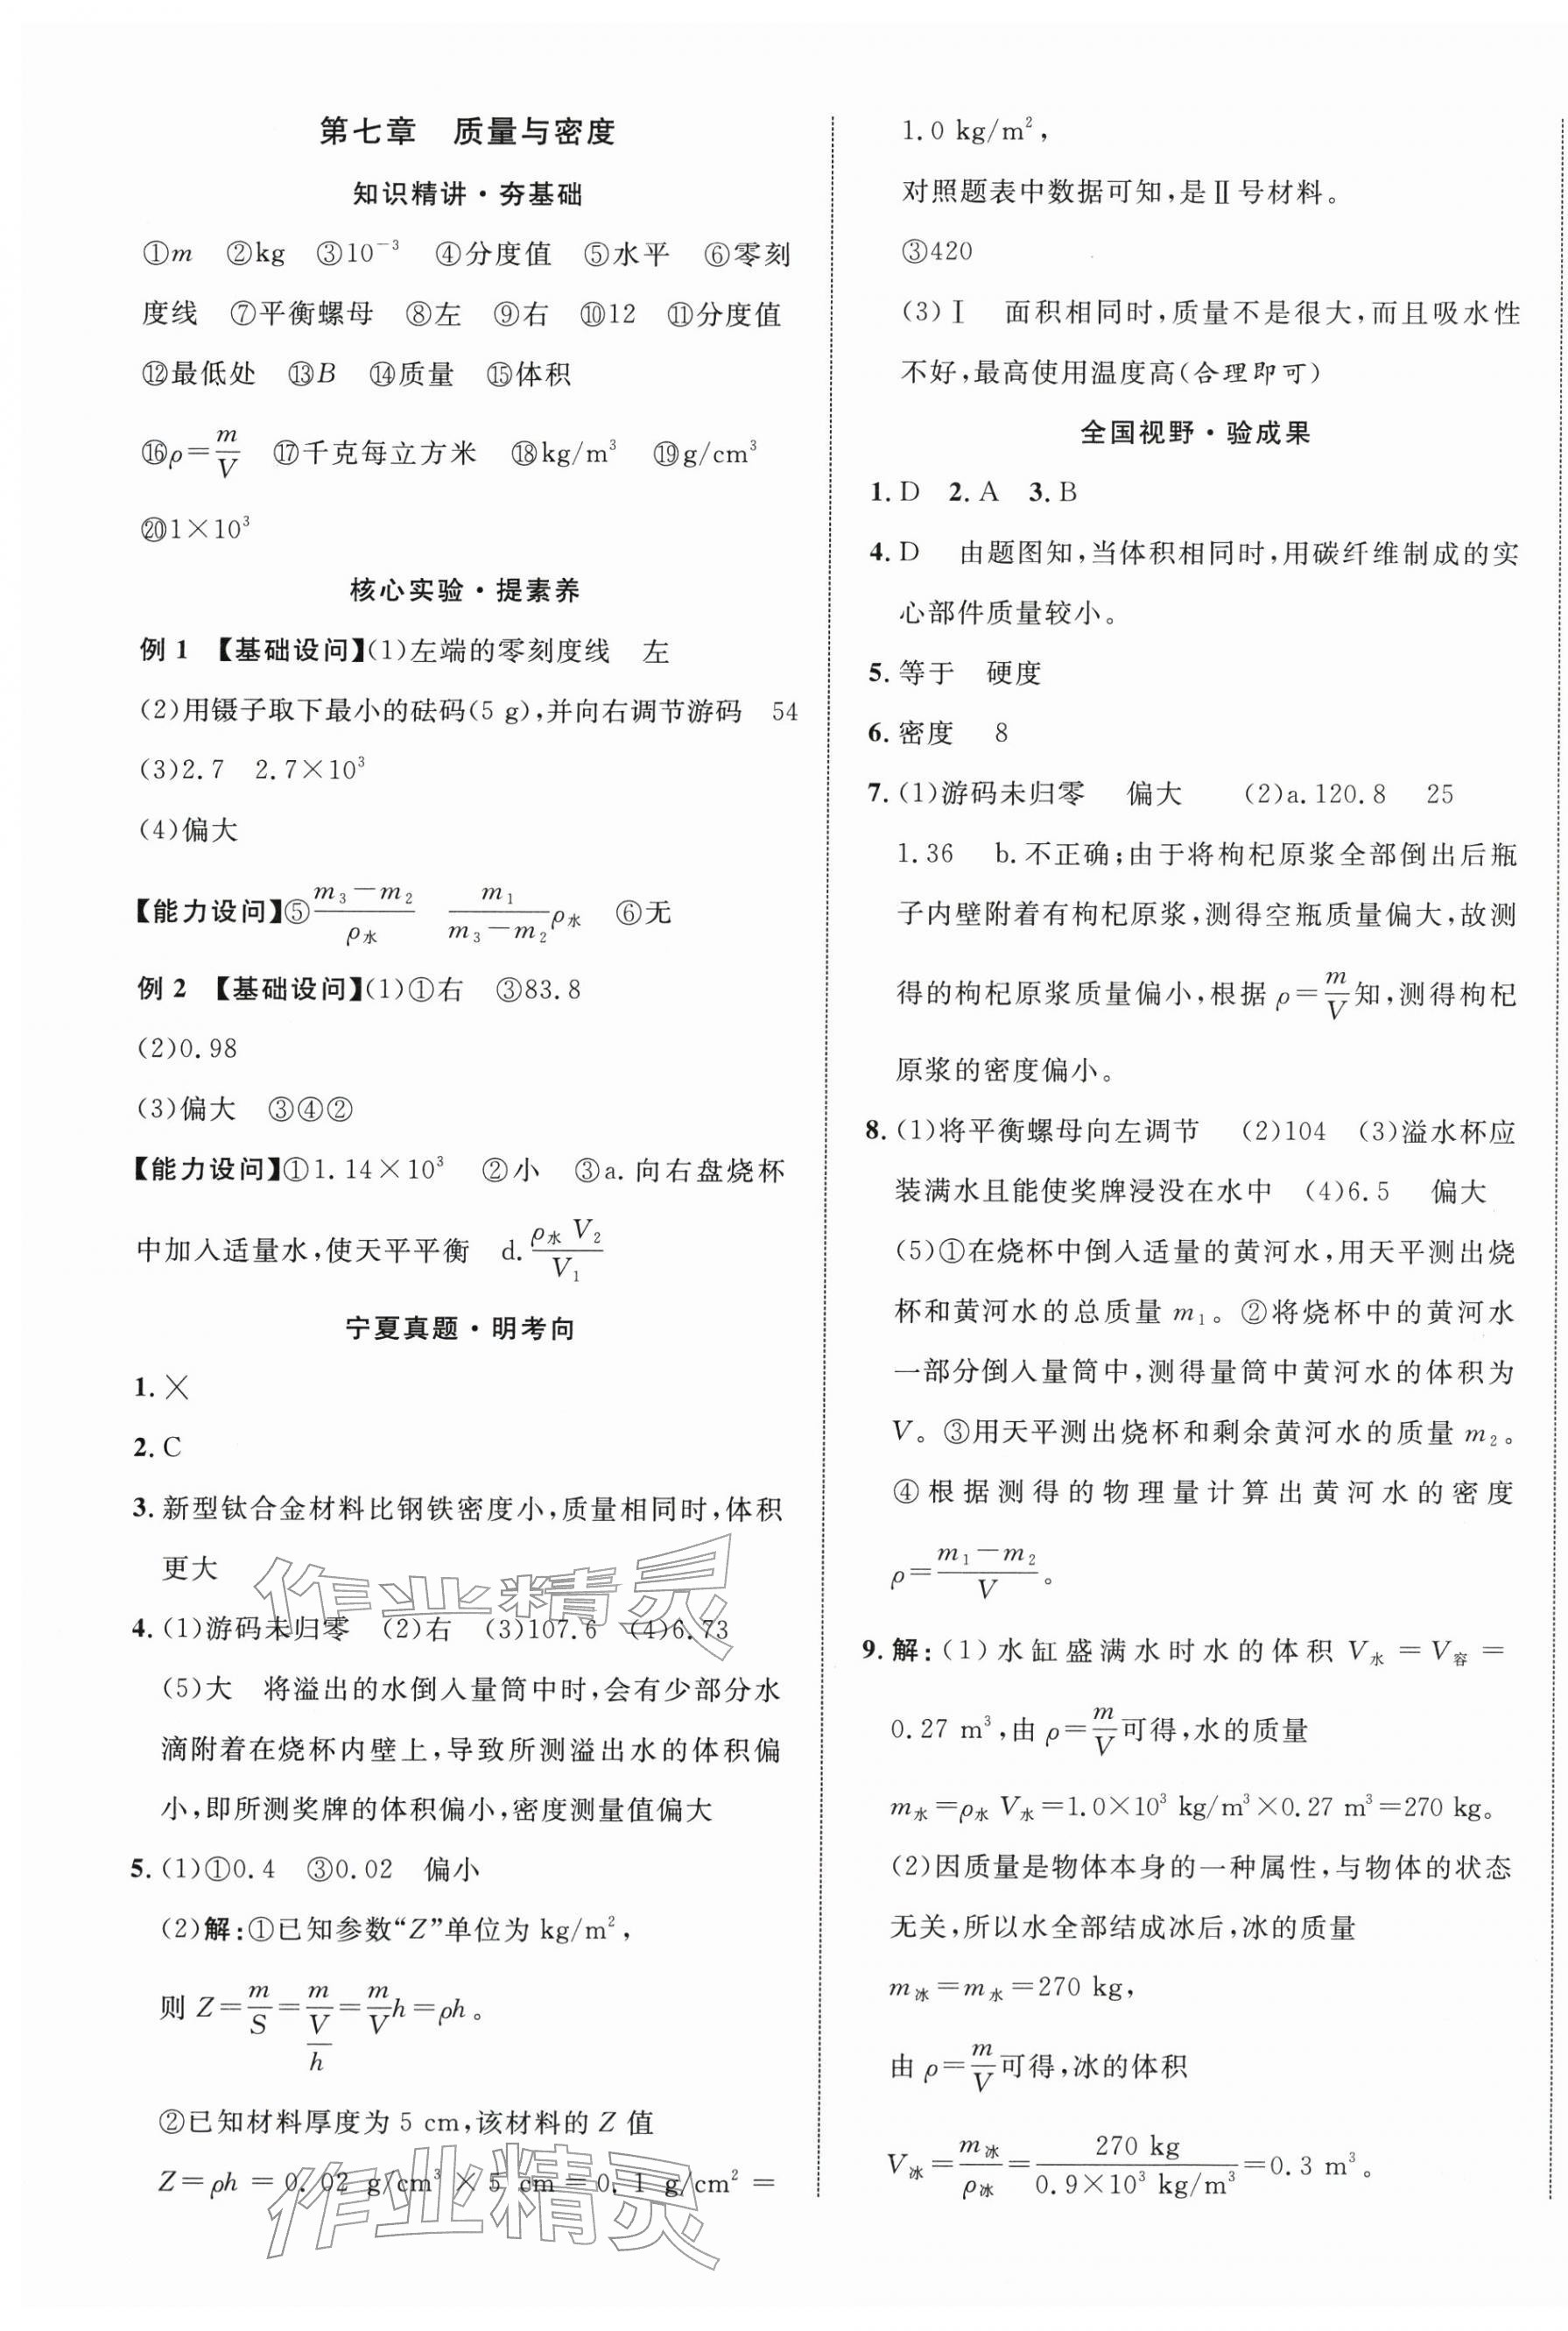 第七章　质量与密度
知识精讲·夯基础
①m　②kg　③10⁻³　④分度值　⑤水平　⑥零刻
度线　⑦平衡螺母　⑧左　⑨右　⑩12　⑪分度值
⑫最低处　⑬B　⑭质量　⑮体积
⑯ρ=m/V　⑰千克每立方米　⑱kg/m³　⑲g/cm³
⑳1×10³
核心实验·提素养
例 1　【基础设问】(1)左端的零刻度线　左
(2)用镊子取下最小的砝码(5 g),并向右调节游码　54
(3)2.7　2.7×10³
(4)偏大
【能力设问】⑤(m₃-m₂)/ρ水　m₁/(m₃-m₂)ρ水　⑥无
例 2　【基础设问】(1)①右　③83.8
(2)0.98
(3)偏大　③④②
【能力设问】①1.14×10³　②小　③a.向右盘烧杯
中加入适量水,使天平平衡　d.ρ水V₂/V₁
宁夏真题·明考向
1.×
2.C
3.新型钛合金材料比钢铁密度小,质量相同时,体积
更大
4.(1)游码未归零　(2)右　(3)107.6　(4)6.73
(5)大　将溢出的水倒入量筒中时,会有少部分水
滴附着在烧杯内壁上,导致所测溢出水的体积偏
小,即所测奖牌的体积偏小,密度测量值偏大
5.(1)①0.4　③0.02　偏小
(2)解:①已知参数“Z”单位为 kg/m²,
则 Z=m/S=m/(V/h)=m/V h=ρh。
②已知材料厚度为 5 cm,该材料的 Z 值
Z=ρh=0.02 g/cm³×5 cm=0.1 g/cm²=
1.0 kg/m²,
对照题表中数据可知,是Ⅱ号材料。
③420
(3)Ⅰ　面积相同时,质量不是很大,而且吸水性
不好,最高使用温度高(合理即可)
全国视野·验成果
1.D　2.A　3.B
4.D　由题图知,当体积相同时,用碳纤维制成的实
心部件质量较小。
5.等于　硬度
6.密度　8
7.(1)游码未归零　偏大　(2)a.120.8　25
1.36　b.不正确;由于将枸杞原浆全部倒出后瓶
子内壁附着有枸杞原浆,测得空瓶质量偏大,故测
得的枸杞原浆质量偏小,根据 ρ=m/V知,测得枸杞
原浆的密度偏小。
8.(1)将平衡螺母向左调节　(2)104　(3)溢水杯应
装满水且能使奖牌浸没在水中　(4)6.5　偏大
(5)①在烧杯中倒入适量的黄河水,用天平测出烧
杯和黄河水的总质量 m₁。②将烧杯中的黄河水
一部分倒入量筒中,测得量筒中黄河水的体积为
V。③用天平测出烧杯和剩余黄河水的质量 m₂。
④根据测得的物理量计算出黄河水的密度
ρ=(m₁-m₂)/V。
9.解:(1)水缸盛满水时水的体积 V水=V容=
0.27 m³,由 ρ=m/V可得,水的质量
m水=ρ水V水=1.0×10³ kg/m³×0.27 m³=270 kg。
(2)因质量是物体本身的一种属性,与物体的状态
无关,所以水全部结成冰后,冰的质量
m冰=m水=270 kg,
由 ρ=m/V可得,冰的体积
V冰=m冰/ρ冰=270 kg/(0.9×10³ kg/m³)=0.3 m³。
作业精灵
作业精灵